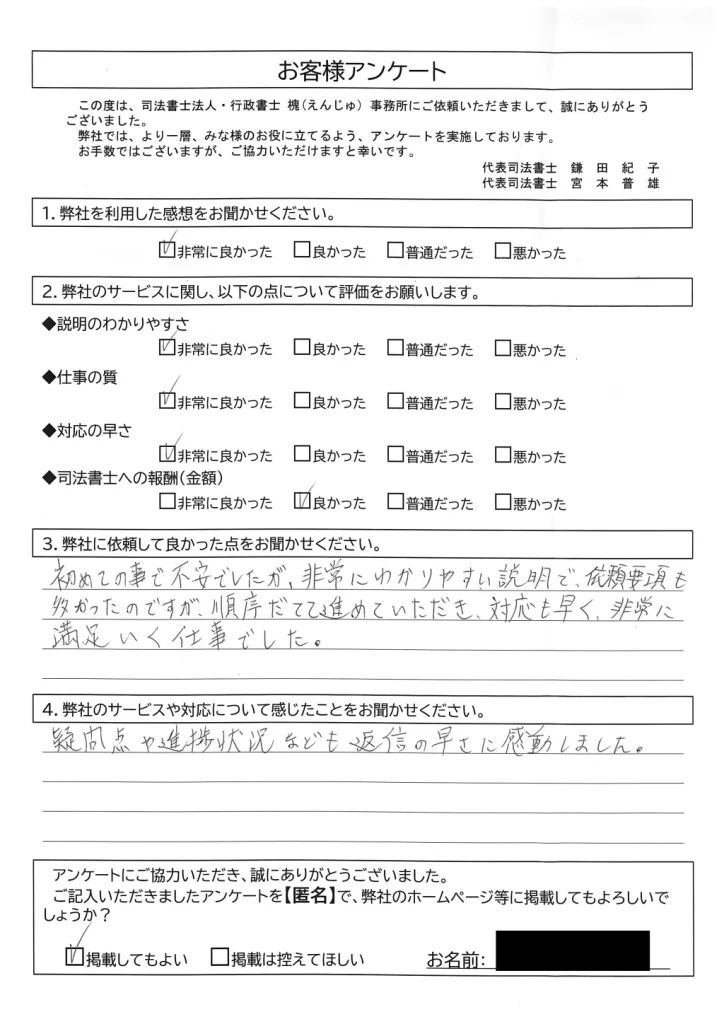 お客様アンケート
この度は、司法書士法人・行政書士 槐(えんじゅ) 事務所にご依頼いただきまして、誠にありがとう
ございました。
弊社では、より一層、みな様のお役に立てるよう、アンケートを実施しております。
お手数ではございますが、ご協力いただけますと幸いです。
代表司法書士 鎌 田 紀 子
代表司法書士 宮 本 普 雄
1. 弊社を利用した感想をお聞かせください。
☑非常に良かった □良かった □普通だった □悪かった
2. 弊社のサービスに関し、以下の点について評価をお願いします。
◆説明のわかりやすさ
☑非常に良かった □良かった □普通だった □悪かった
◆仕事の質
☑非常に良かった □良かった □普通だった □悪かった
◆対応の早さ
☑非常に良かった □良かった □普通だった □悪かった
◆司法書士への報酬(金額)
□非常に良かった ☑良かった □普通だった □悪かった
3. 弊社に依頼して良かった点をお聞かせください。
初めての事で不安でしたが、非常にわかりやすい説明で、依頼要項も
多かったのですが、順序だてて進めていただき、対応も早く、非常に
満足いく仕事でした。
4. 弊社のサービスや対応について感じたことをお聞かせください。
疑問点や進捗状況なども返信の早さに感動しました。
アンケートにご協力いただき、誠にありがとうございました。
ご記入いただきましたアンケートを【匿名】で、弊社のホームページ等に掲載してもよろしいで
しょうか？
☑掲載してもよい □掲載は控えてほしい お名前: